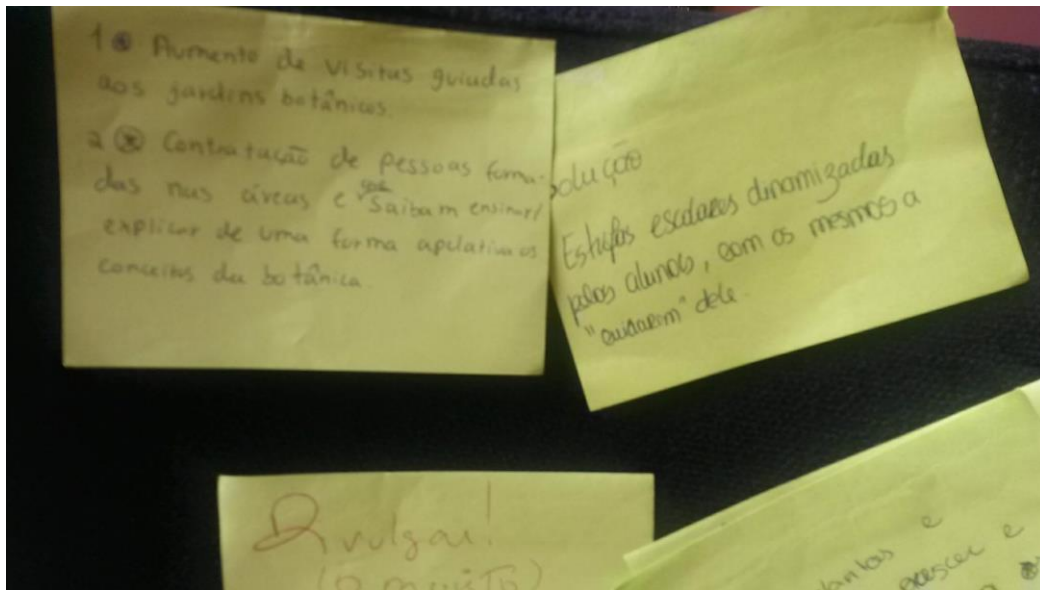 1 Aumento de visitas guiadas
aos jardins botânicos.
2 Contratação de pessoas forma-
das nas áreas e que saibam ensinar/
explicar de uma forma apelativa os
conceitos da botânica.
olução
Estufas escolares dinamizadas
pelos alunos, com os mesmos a
"cuidarem" dele.
Divulgar!
(o muito)
e
crescer e